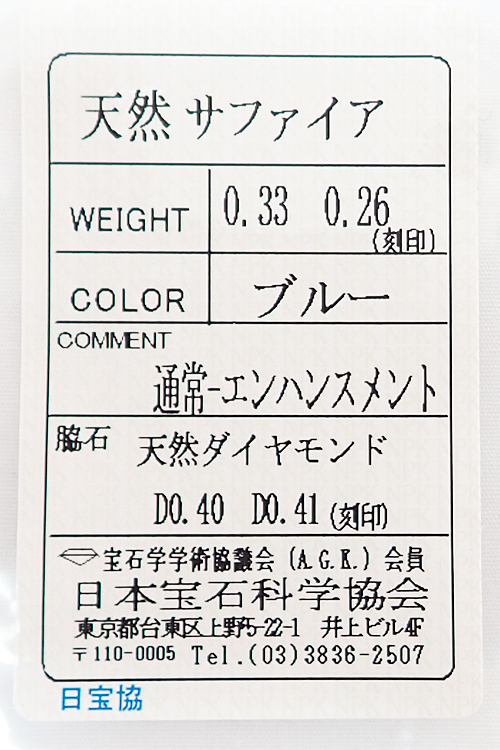 天然 サファイア
WEIGHT 0.33 0.26
(刻印)
COLOR ブルー
COMMENT
通常-エンハンスメント
脇石 天然ダイヤモンド
D0.40 D0.41 (刻印)
宝石学学術協議会 (A.G.K.) 会員
日本宝石科学協会
東京都台東区上野5-22-1 井上ビル4F
〒110-0005 Tel.(03)3836-2507
日宝協